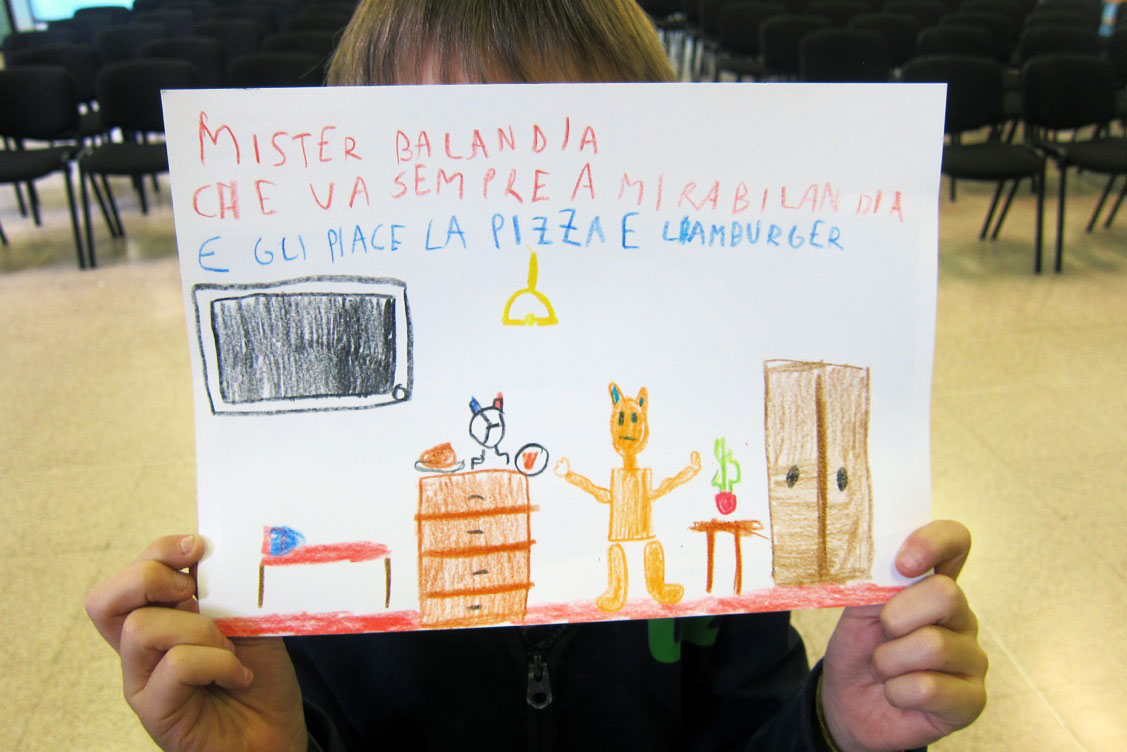 MISTER BALANDIA
CHE VA SEMPRE A MIRABILANDIA
E GLI PIACE LA PIZZA E LHAMBURGER